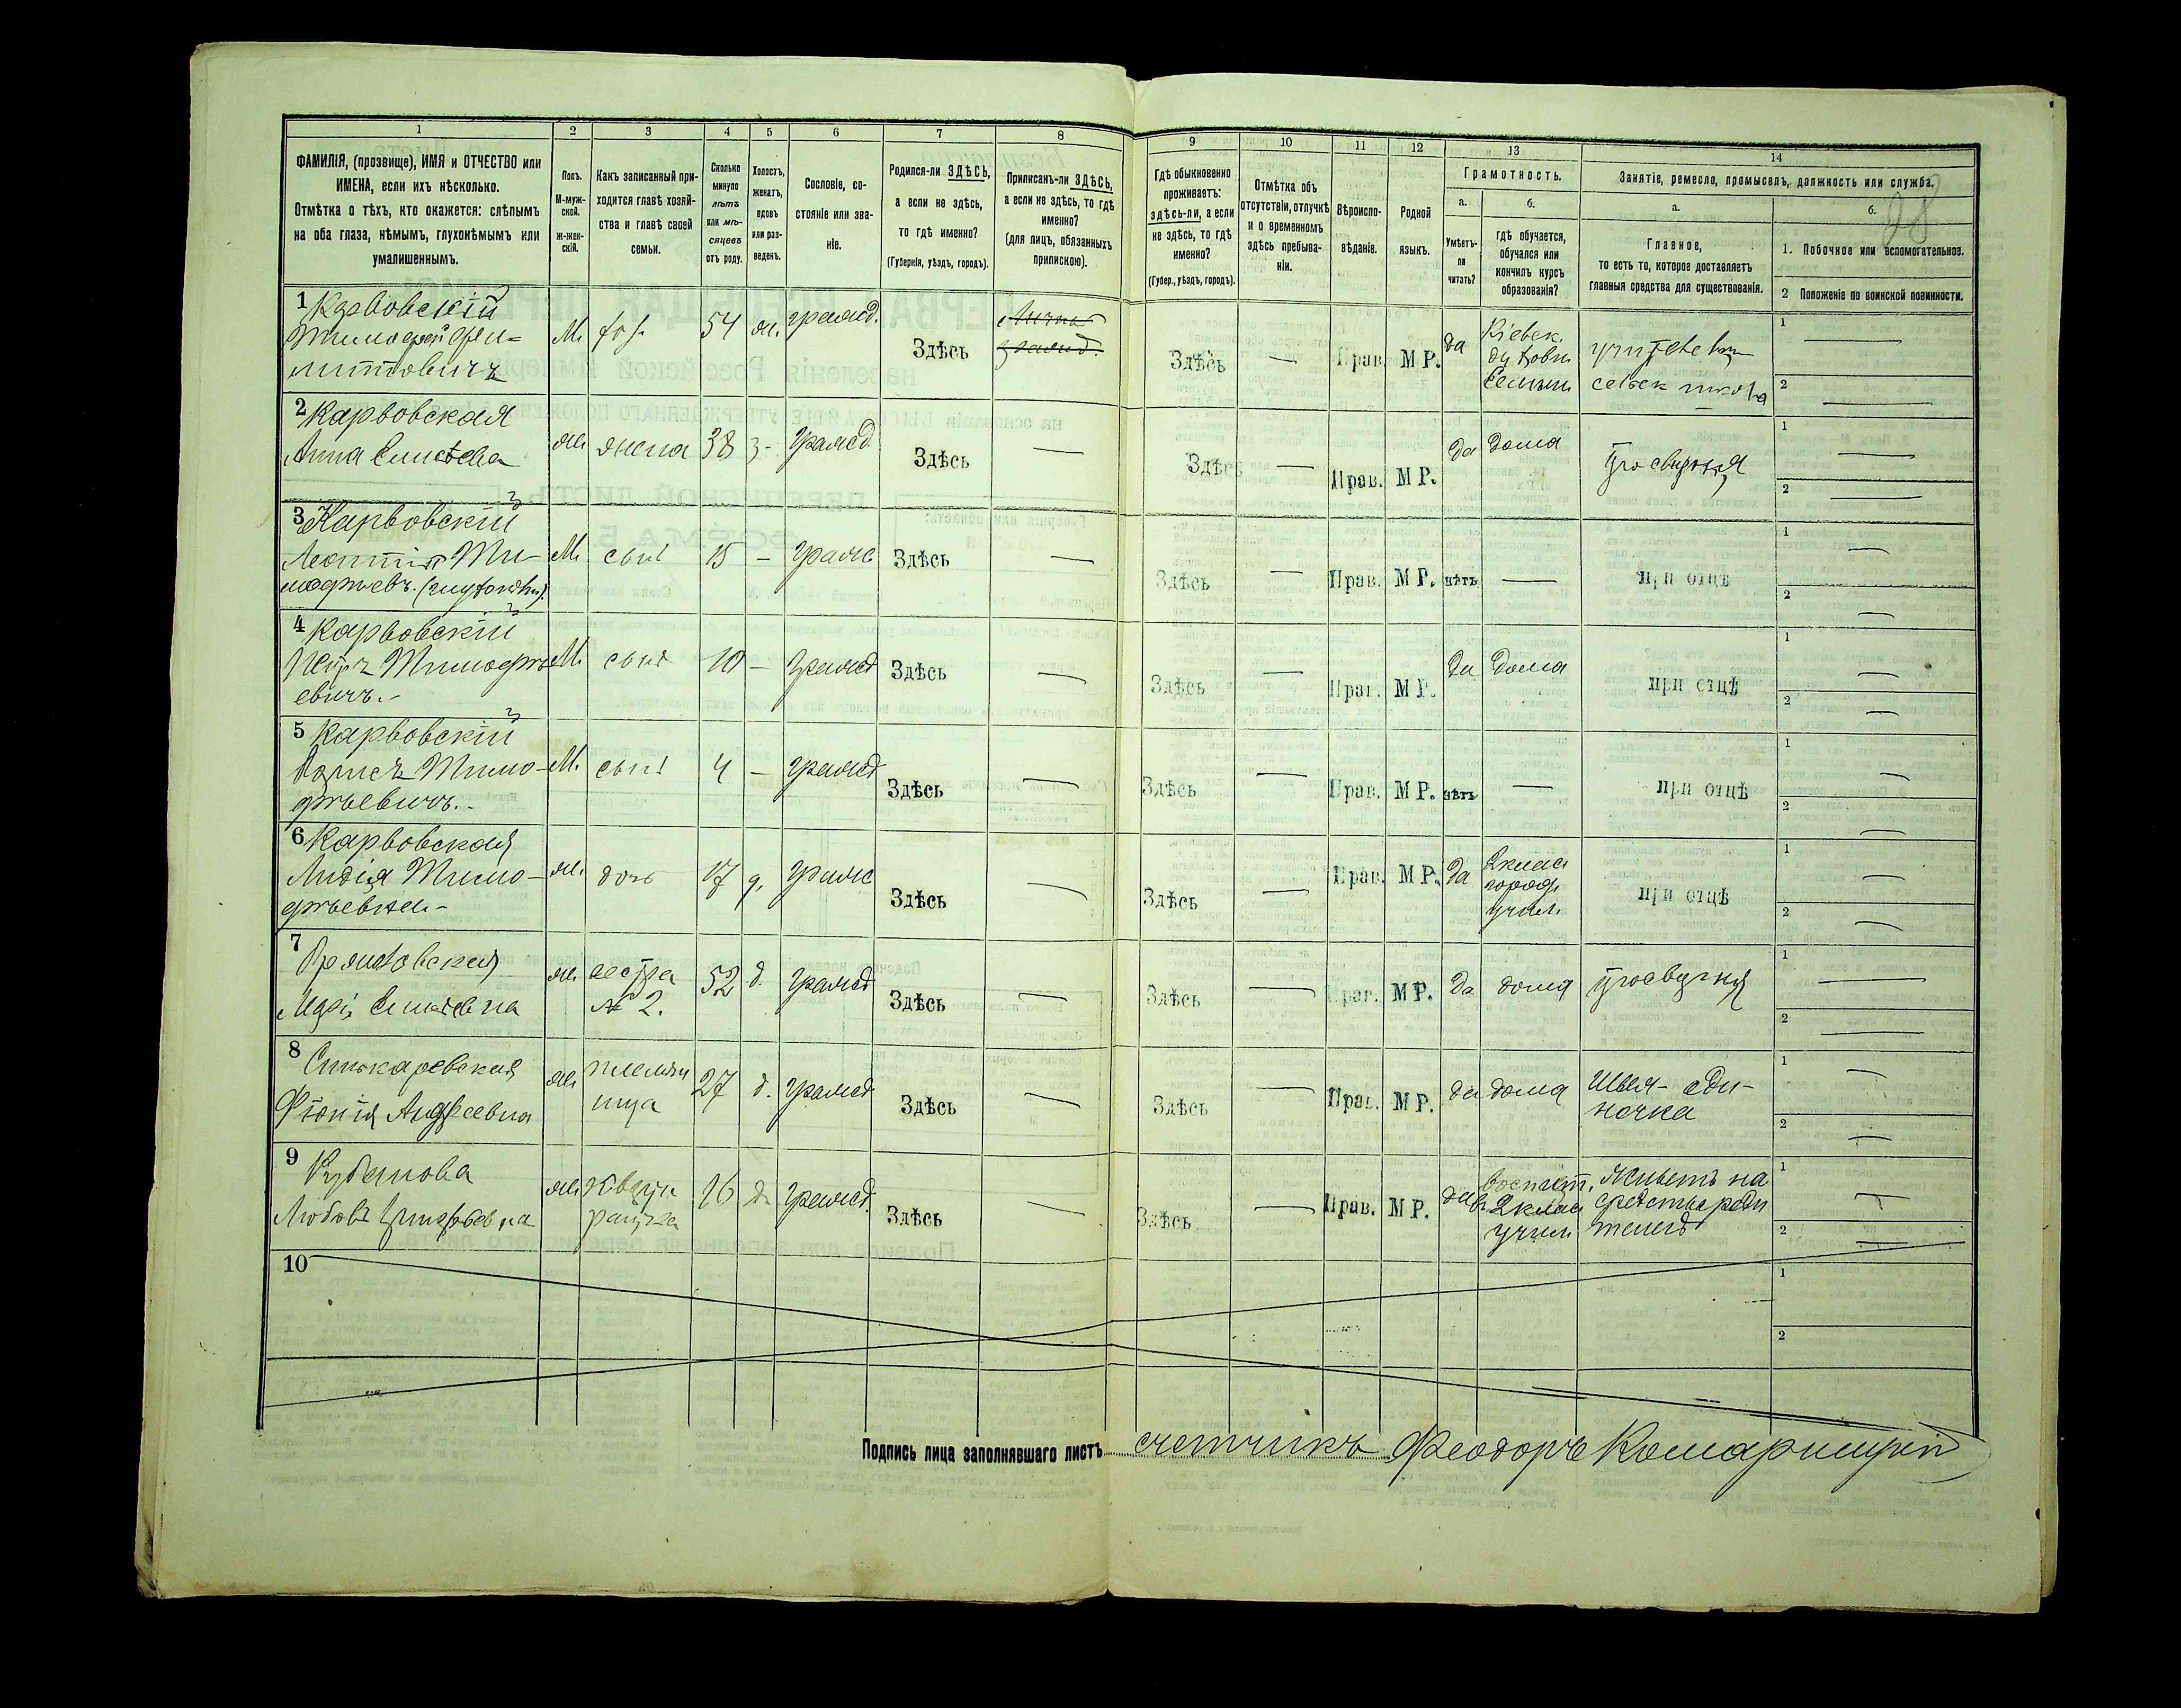 1 2 3 4 5 6 7 8 9 10 11 12 13 14
ФАМИЛІЯ, (прозвище), ИМЯ и ОТЧЕСТВО или
ИМЕНА, если ихъ нѣсколько.
Отмѣтка о тѣхъ, кто окажется: слѣпымъ
на оба глаза, нѣмымъ, глухонѣмымъ или
умалишеннымъ.
Полъ.
М-муж-
ской.
ж-жен-
скій.
Какъ записанный при-
ходится главѣ хозяй-
ства и главѣ своей
семьи.
Сколько
минуло
лѣтъ
или мѣ-
сяцевъ
отъ роду.
Холостъ,
женатъ,
вдовъ
или раз-
веденъ.
Сословіе, со-
стояніе или зва-
ніе.
Родился-ли ЗДѢСЬ,
а если не здѣсь,
то гдѣ именно?
(Губернія, уѣздъ, городъ).
Приписанъ-ли ЗДѢСЬ,
а если не здѣсь, то гдѣ
именно?
(для лицъ, обязанныхъ
припискою).
Гдѣ обыкновенно
проживаетъ:
здѣсь-ли, а если
не здѣсь, то гдѣ
именно?
(Губер., уѣздъ, городъ).
Отмѣтка объ
отсутствіи, отлучкѣ
и о временномъ
здѣсь пребыва-
ніи.
Вѣроиспо-
вѣданіе.
Родной
языкъ.
Грамотность.
а.
Умѣетъ-
ли
читать?
б.
гдѣ обучается,
обучался или
кончилъ курсъ
образованія?
Занятіе, ремесло, промыселъ, должность или служба.
а.
Главное,
то есть то, которое доставляетъ
главныя средства для существованія.
б.
1. Побочное или вспомогательное.
2 Положеніе по воинской повинности.
28
1 Карвовскій
Тимофей
М. 54 ж. гражд. Здѣсь
Здѣсь — Прав. МР. да
Кіевск.
духовн
Семин
учитель
сельск школы
1 —
2 —
2 Карвовская
Анна
же жена 38 з- гражд Здѣсь —
Здѣсь — Прав. МР. да дома
1 —
2 —
3 Карвовскій
Леонтій Ти-
мофѣевъ.
М. сынъ 15 — гражд Здѣсь —
Здѣсь — Прав. МР. нѣтъ — при отцѣ
1 —
2 —
4 Карвовскій
Петръ Тимофѣ
евичъ.-
М. сынъ 10 — гражд Здѣсь —
Здѣсь — Прав. МР. да дома при отцѣ
1 —
2 —
5 Карвовскій
Борисъ Тимо-
фѣевичъ.-
М. сынъ 4 — гражд Здѣсь —
Здѣсь — Прав. МР. нѣтъ — при отцѣ
1 —
2 —
6 Карвовская
Лидія Тимо-
фѣевна-
же. дочь 17 д. гражд Здѣсь —
Здѣсь — Прав. МР. да
2 класн
город.
учил.
при отцѣ
1 —
2 —
7
же сестра
№ 2.
52 д. гражд Здѣсь —
Здѣсь — Прав. МР. да дома
1 —
2 —
8
Андреевна
же племян
ница
27 д. гражд Здѣсь —
Здѣсь — Прав. МР. да дома
Швея- оди-
ночка
1 —
2 —
9
Любовь
же кварти
рантка
16 д гражд. Здѣсь —
Здѣсь — Прав. МР. да
воспит.
въ 2 класн
учил
Живетъ на
средства роди
телей
1 —
2 —
10
1
2
Подпись лица заполнявшаго листъ счетчикъ Феодоръ Комарницкій